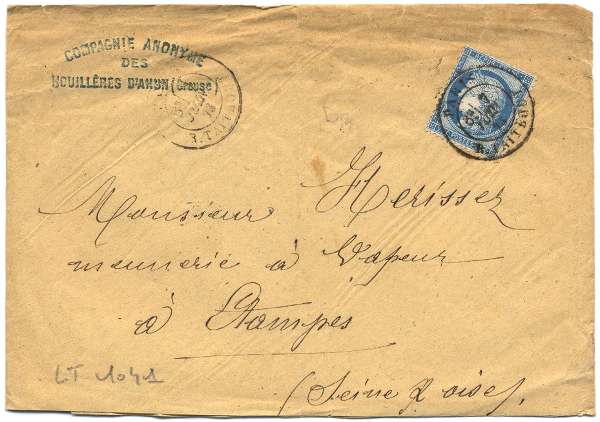 COMPAGNIE ANONYME
DES
HOUILLÈRES D'AHUN (Creuse)
PARIS
R. TAITBOUT
Monsieur Herisset
meunerie à Vapeur
à Etampes
(Seine & oise).
LT 1041